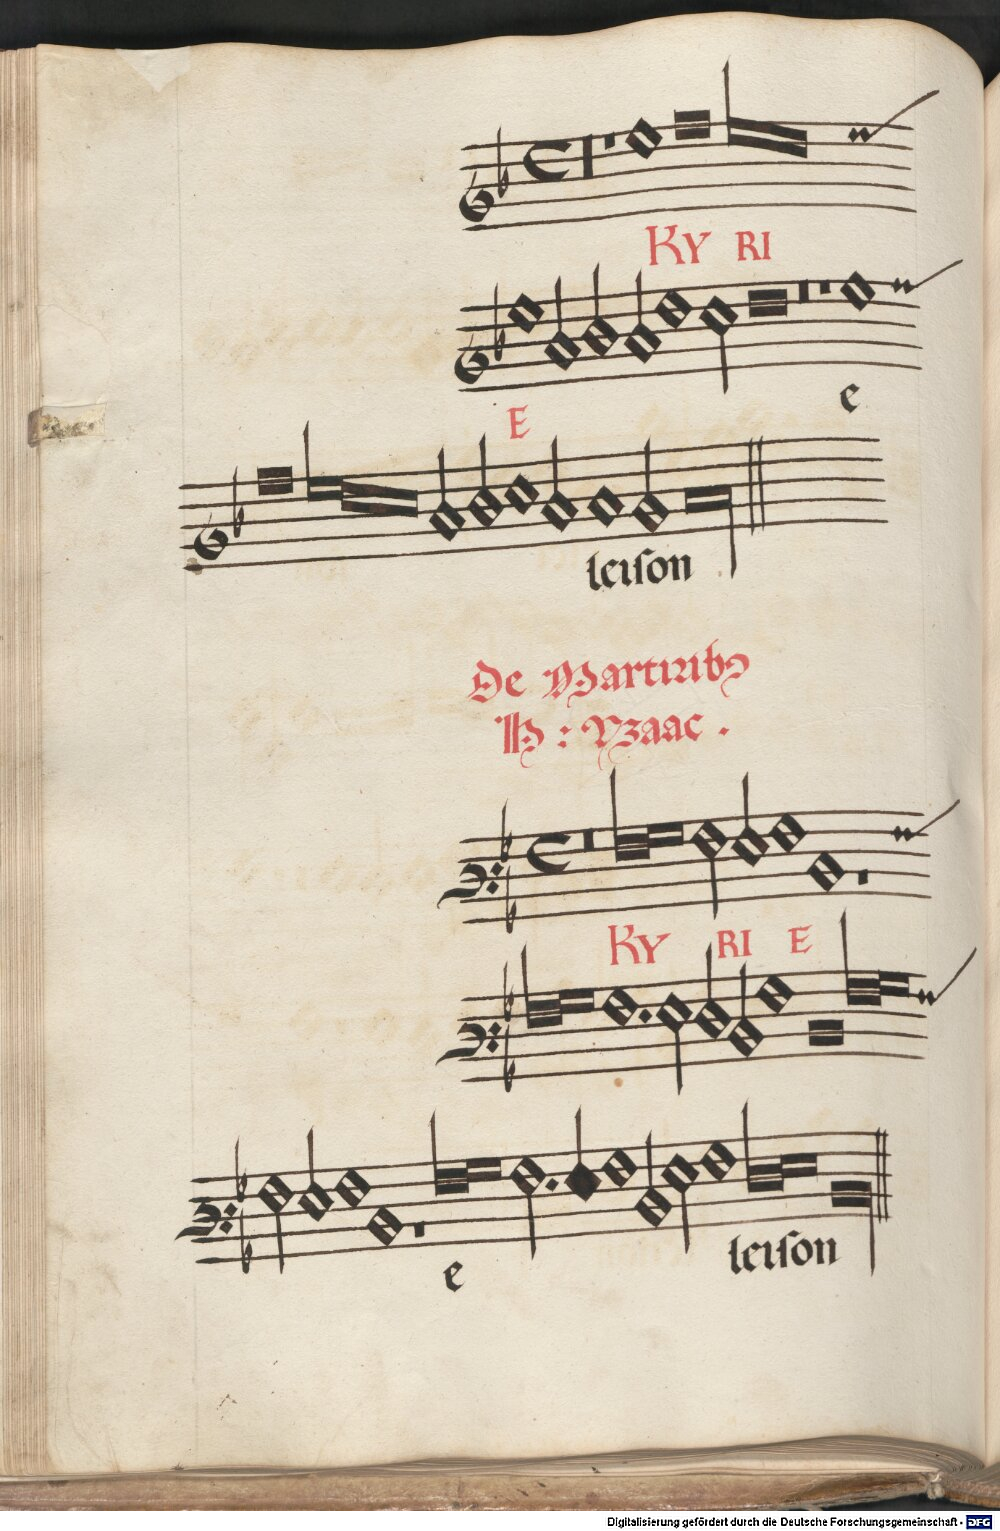 KY RI
E e
leiſon
De Martiribꝰ
H : Yzaac .
KY RI E
e leiſon
Digitalisierung gefördert durch die Deutsche Forschungsgemeinschaft - DFG